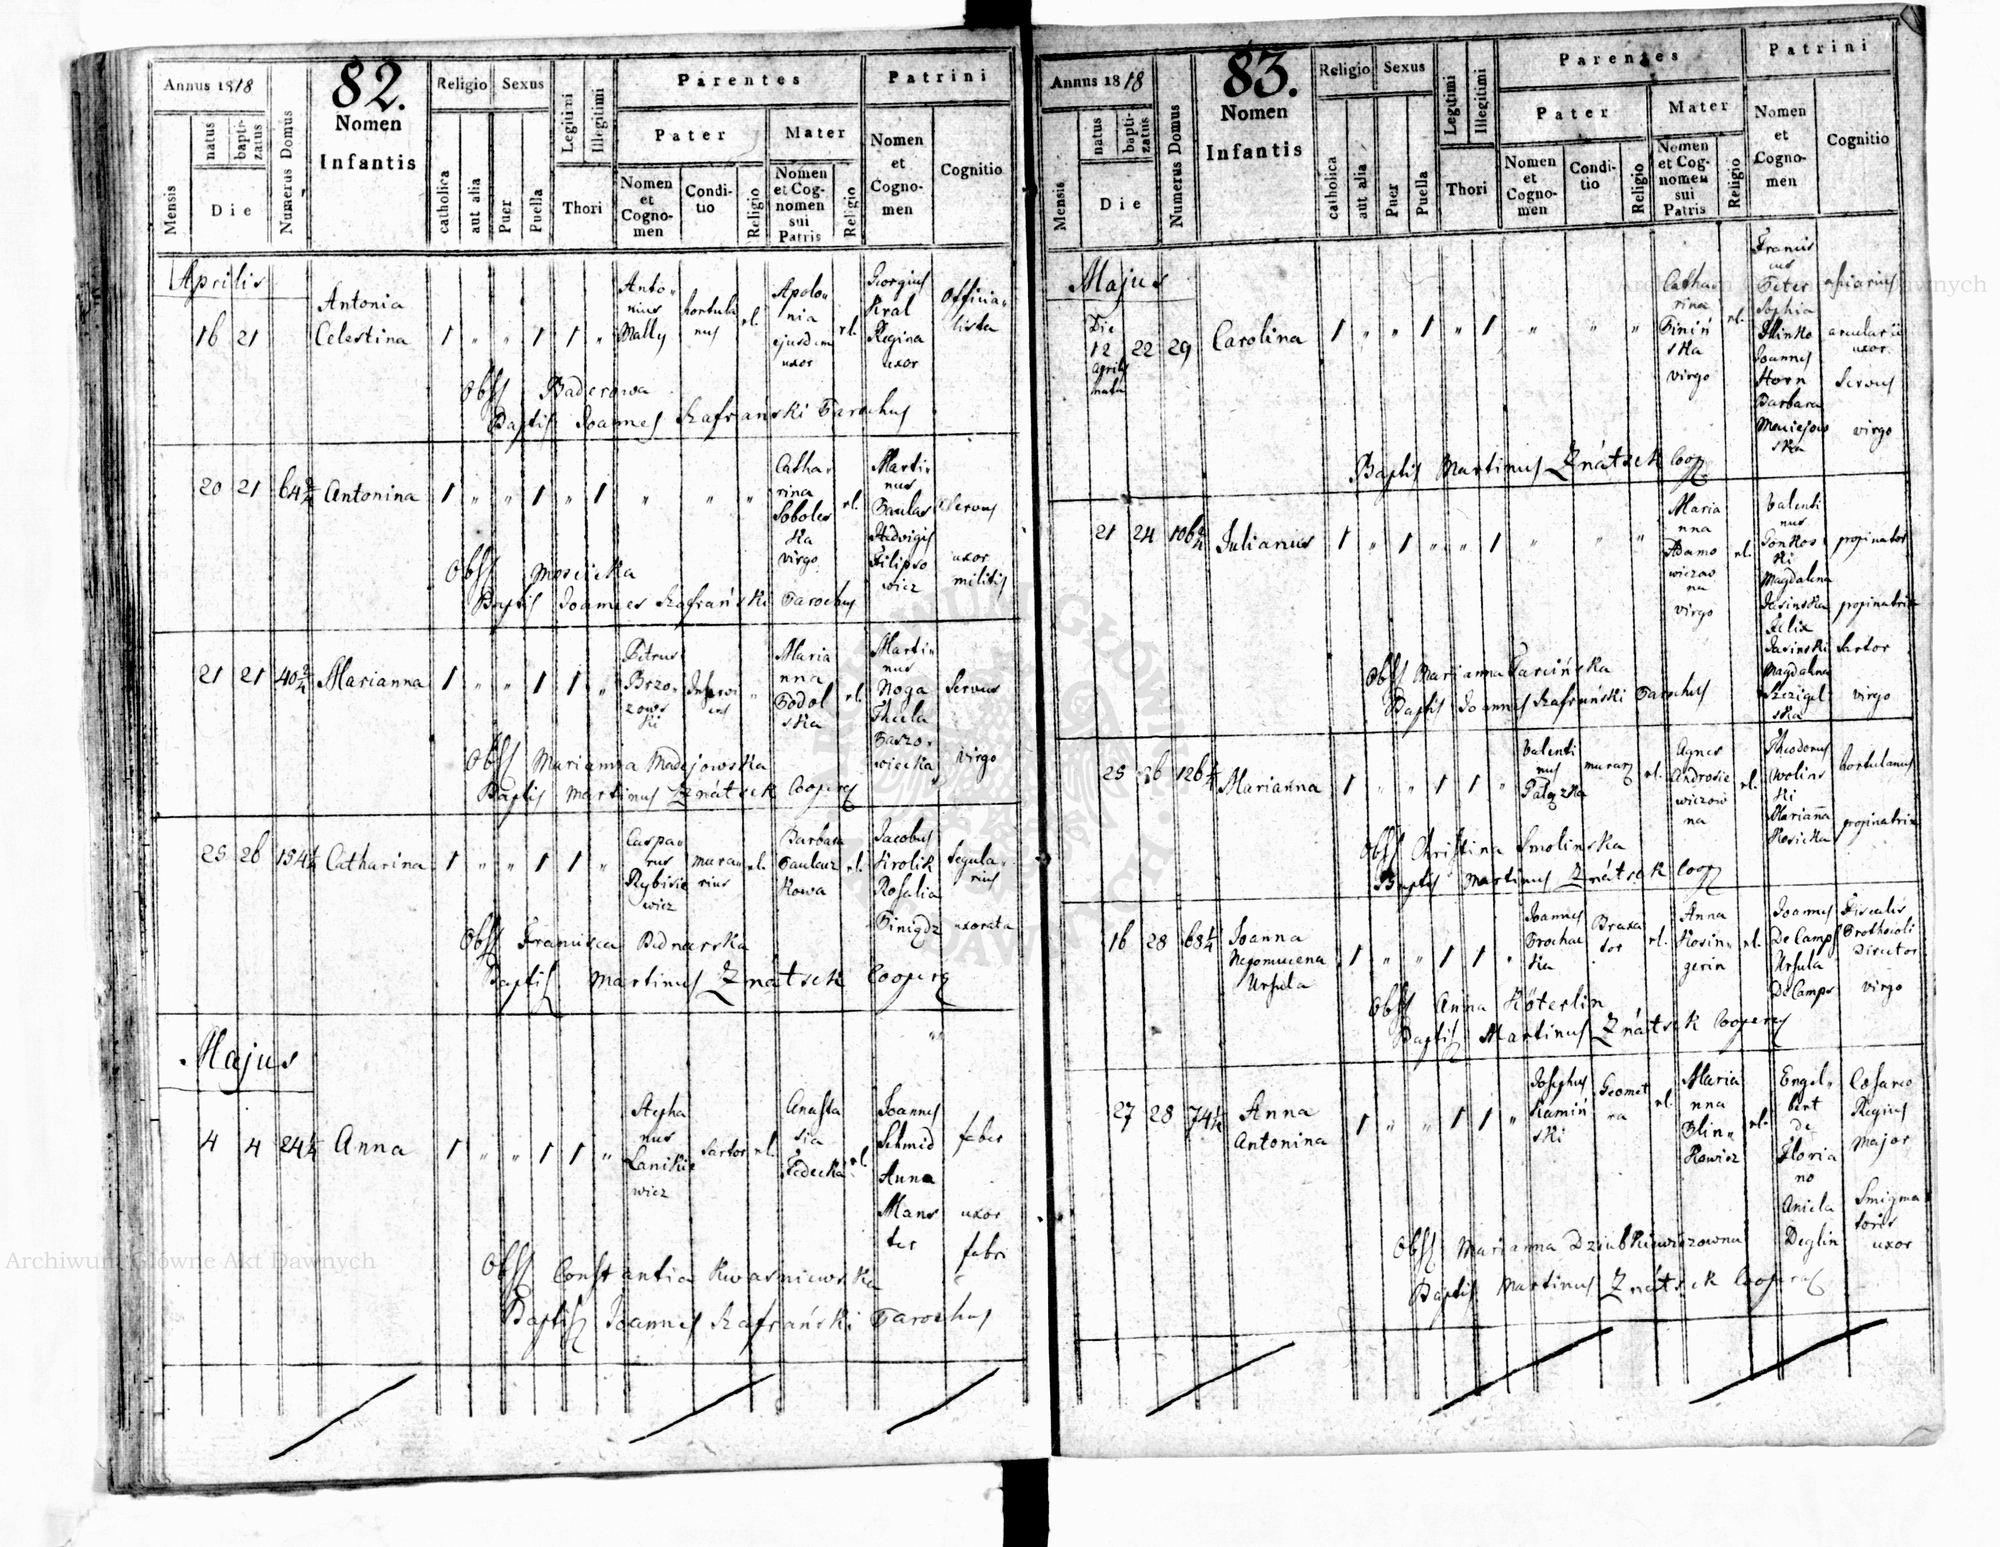 Annus 1818
82.
Nomen
Infantis
Religio
Sexus
Parentes
Patrini
Mensis
natus
bapti-
zatus
Die
Numerus Domus
catholica
aut alia
Puer
Puella
Legitimi
Illegitimi
Thori
Pater
Mater
Nomen
et
Cogno-
men
Condi-
tio
Religio
Nomen
et Cog-
nomen
sui
Patris
Religio
Nomen
et
Cogno-
men
Cognitio
Aprilis
16 21
Antonia
Celestina
1 " " 1 1 "
Anto-
nius
Mally
hortula
nus
rl.
Apolo-
nia
ejusdem
uxor
rl.
Georgius
Kral
Regina
uxor
Officia-
lista
Obst Baderowa
Baptis Joannes Szafrański Parochus
20 21 64 2/4 Antonina 1 " " 1 " 1 " " "
Catha-
rina
Soboles
ka
virgo
rl.
Marti-
nus
Paulas
Hedvigis
Filipso
wicz
Servus
uxor
militis
Obst Mosiicka
Baptis Joannes Szafrański Parochus
21 21 40 2/4 Marianna 1 " " 1 1 "
Petrus
Brzo-
zows
ki
"
Maria
nna
Podol
ska
rl.
Marti-
nus
Noga
Thecla
Baszo-
wiecka
Servus
virgo
Obst Marianna Madejowska
Baptis Martinus Znátsek Coopers
25 26 154 1/4 Catharina 1 " " 1 1 "
Caspa-
rus
Rybisie
wicz
mura-
rius
rl.
Barbara
Paulaur
kowa
rl.
Jacobus
Krolik
Rosalia
Pinigdz
tegula-
rius
uxorata
Obst Francisca Bednarska
Baptis Martinus Znátsek Coopers
Majus
4 4 24 1/4 Anna 1 " " 1 1 "
Stepha
nus
Lanikie
wicz
Sartor
rl.
Anasta
sia
Fedecka
rl.
Joannes
Schmid
Anna
Mans
ter
faber
uxor
fabri
Obst Constantia Kwasniewska
Baptis Joannes Szafrański Parochus
Annus 1818
83.
Nomen
Infantis
Religio
Sexus
Parentes
Patrini
Mensis
natus
bapti-
zatus
Die
Numerus Domus
catholica
aut alia
Puer
Puella
Legitimi
Illegitimi
Thori
Pater
Mater
Nomen
et
Cogno-
men
Condi-
tio
Religio
Nomen
et Cog-
nomen
sui
Patris
Religio
Nomen
et
Cogno-
men
Cognitio
Majus
Die
12
Aprilis
nata
22 29 Carolina 1 " " 1 " 1 " " "
Catha-
rina
Binin
ska
virgo
rl.
Francis
cus
Peter
Sophia
Hlinko
Joannes
Horn
Barbara
Maciejow
ska
arcularii
uxor
Servus
virgo
Baptis Martinus Znátsek Coop
21 24 106 2/4 Julianus 1 " 1 " " 1 " " "
Maria
nna
Adamo
wiczow
na
virgo
rl.
Valenti
nus
Jonkos
ki
Magdalena
Jasinska
Felix
Jasinski
Magdalena
Szczigel
ska
propinator
propinatrix
Sartor
virgo
Obst Marianna Parcińska
Baptis Joannes Szafrański Parochus
25 26 126 Marianna 1 " " 1 1 "
Valenti
nus
Pałęzka
murarz
rl.
Agnes
Androsie
wiczow
na
rl.
Theodorus
Wolins
ki
Marianna
Kosicka
hortulanus
propinatrix
Obst Christina Smolinska
Baptis Martinus Znátsek Coop
16 28 68 1/4
Joanna
Nepomucena
Ursula
1 " " 1 1 "
Joannes
Prochac
ka
Braxa
tor
rl.
Anna
Kosin-
gerin
rl.
Joannes
De Camps
Ursula
De Camps
Fiscalis
Prothocoli
Director
virgo
Obst Anna Köterlin
Baptis Martinus Znátsek Coopers
27 28 74 1/4
Anna
Antonina
1 " " 1 1 "
Josephus
Kamiń
ski
Geomet
ra
rl.
Maria
nna
Blin-
kowicz
rl.
Engel-
bert
de
Floria
no
Aniela
Deglin
Cesareo
Regius
Major
Smigma
toris
uxor
Obst Marianna Dziubkiewiczowna
Baptis Martinus Znátsek Coopers
Archiwum Główne Akt Dawnych